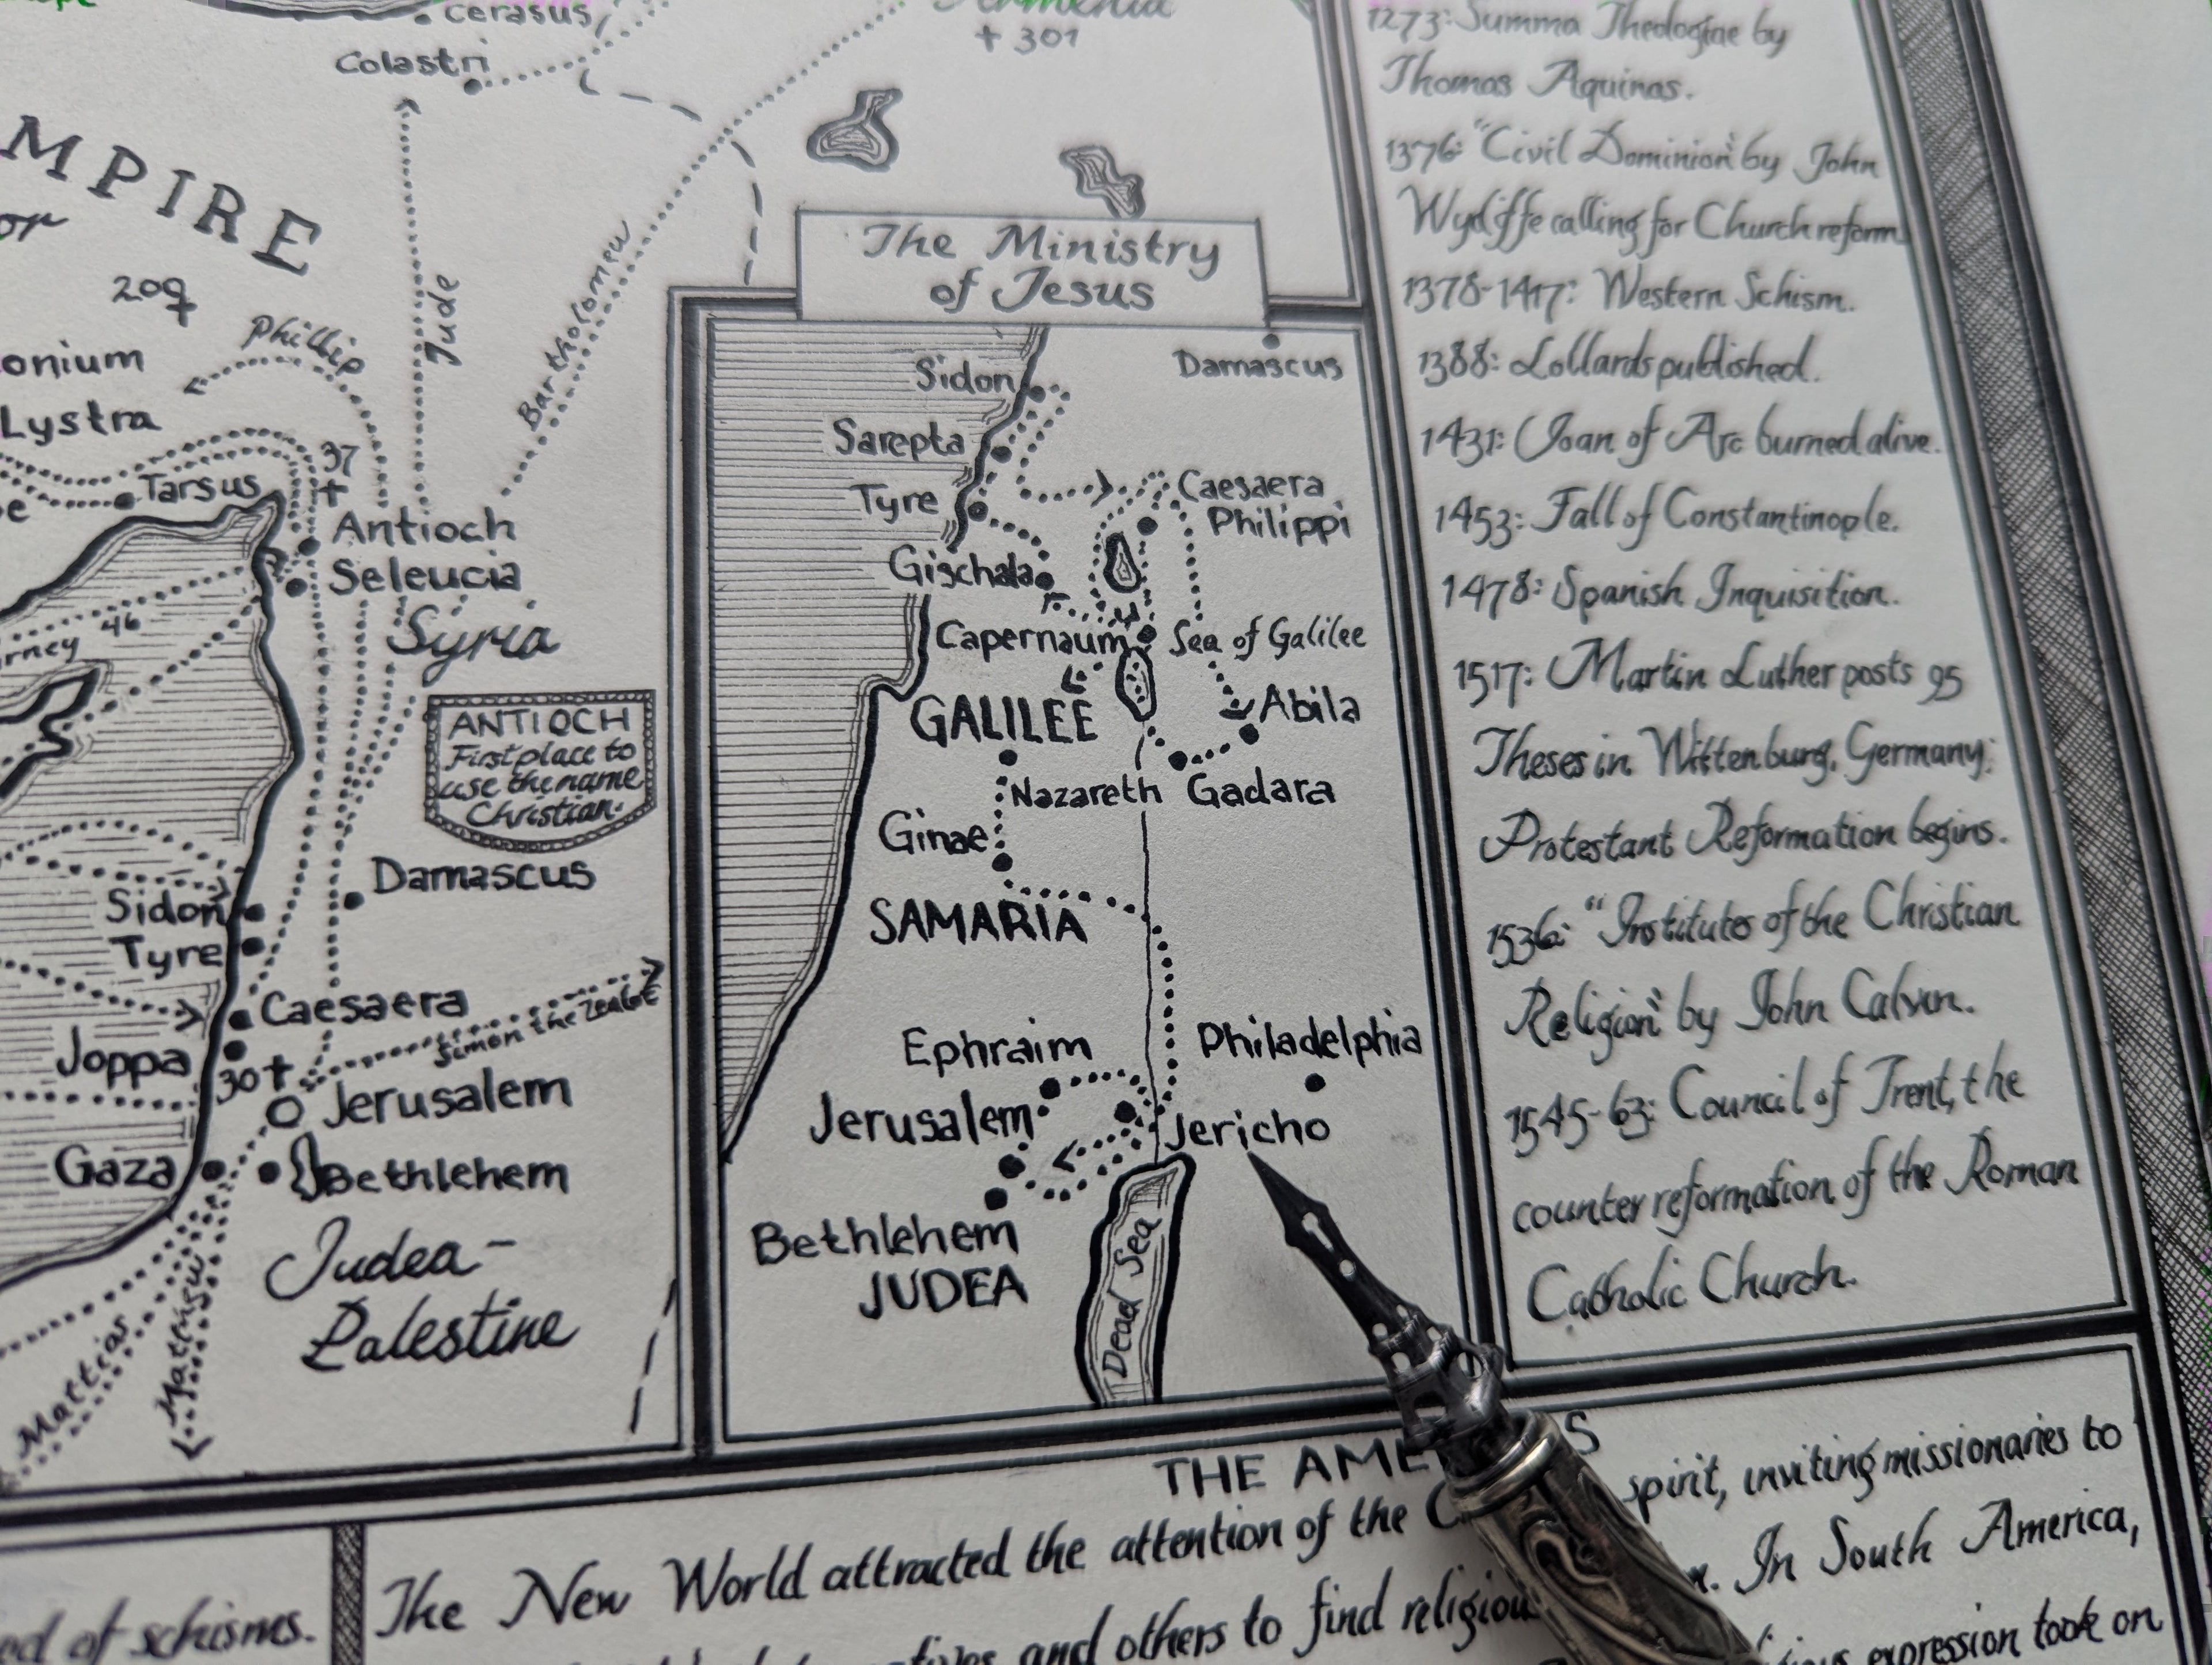 Cerasus
Colastri
Armenia
+ 301
MPIRE
or
209
Phillip
Jude
Bartholomew
onium
Lystra
37
+
Tarsus
e
Antioch
Seleucia
Syria
46
rney
ANTIOCH
First place to
use the name
Christian.
Damascus
Sidon
Tyre
Caesaera
Simon the Zealot
Joppa
30 +
Jerusalem
Gaza
Bethlehem
Judea-
Palestine
Mattias
The Ministry
of Jesus
Damascus
Sidon
Sarepta
Tyre
Caesaera
Philippi
Gischala
Capernaum
Sea of Galilee
GALILEE
Abila
Nazareth
Gadara
Ginae
SAMARIA
Ephraim
Philadelphia
Jerusalem
Jericho
Bethlehem
JUDEA
Dead Sea
1273: Summa Theologiae by
Thomas Aquinas.
1376: "Civil Dominion" by John
Wycliffe calling for Church reform
1378-1417: Western Schism.
1388: Lollards published.
1431: Joan of Arc burned alive.
1453: Fall of Constantinople.
1478: Spanish Inquisition.
1517: Martin Luther posts 95
Theses in Wittenburg, Germany;
Protestant Reformation begins.
1536: "Institutes of the Christian
Religion" by John Calvin.
1545-63: Council of Trent, the
counter reformation of the Roman
Catholic Church.
THE AME S
The New World attracted the attention of the C spirit, inviting missionaries to
and others to find religiou n. In South America,
expression took on
ed of schisms.